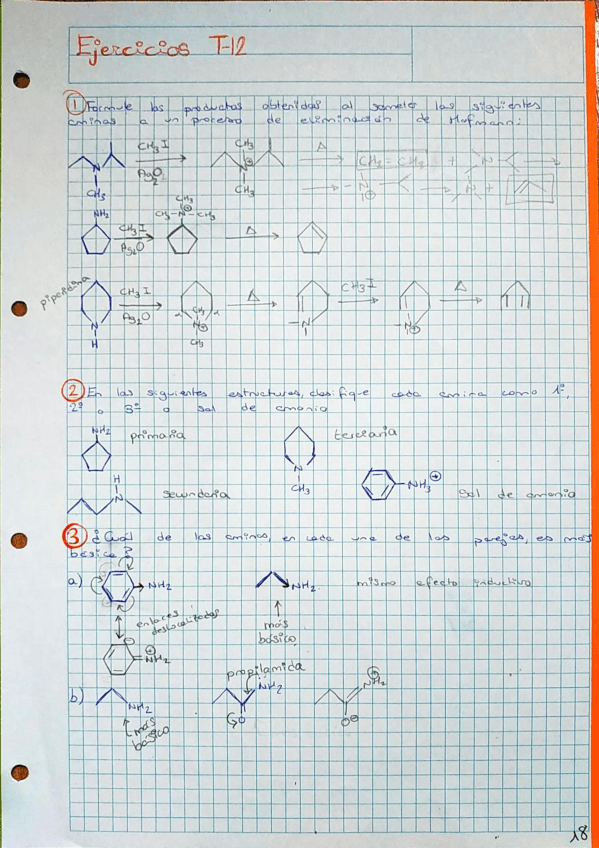 Ejercicios T-12
① Formule los productos obtenidos al someter las siguientes
aminas a un proceso de eliminación de Hofmann:
CH₃I
Ag₂O
N
CH₃
CH₃
N⊕
CH₃
Δ
CH₂=CH₂ + N
N
⊕
N +
NH₂
CH₃I
Ag₂O
CH₃
CH₃-N⊕-CH₃
Δ
piperidina
N
H
CH₃I
Ag₂O
α CH₃ α
N⊕
CH₃
Δ
N
CH₃I
N
⊕
Δ
② En las siguientes estructuras, clasifique cada amina como 1º,
2º o 3º o sal de amonio
NH₂
primaria
terciaria
N
CH₃
H
N
secundaria
NH₃⊕
sal de amonio
③ ¿Cuál de las aminas, en cada una de las parejas, es más
básica?
a)
NH₂
NH₂
mismo efecto inductivo
enlaces
deslocalizados
más
básico
⊕
NH₂
propilamida
b)
NH₂
más
básico
NH₂
O
⊕
NH₂
O⊖
18